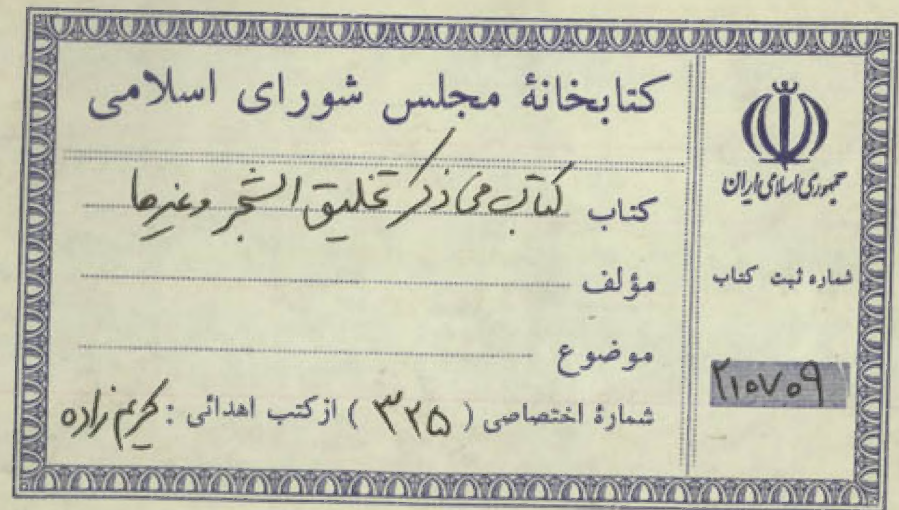 کتابخانهٔ مجلس شورای اسلامی
کتاب کتاب فی ذکر تخلیق الشجر وغیرها
مؤلف
موضوع
شمارهٔ اختصاصی ( ۳۲۵ ) از کتب اهدائی : کریم زاده
جمهوری اسلامی ایران
شماره ثبت کتاب
۲۱۰۷۰۹